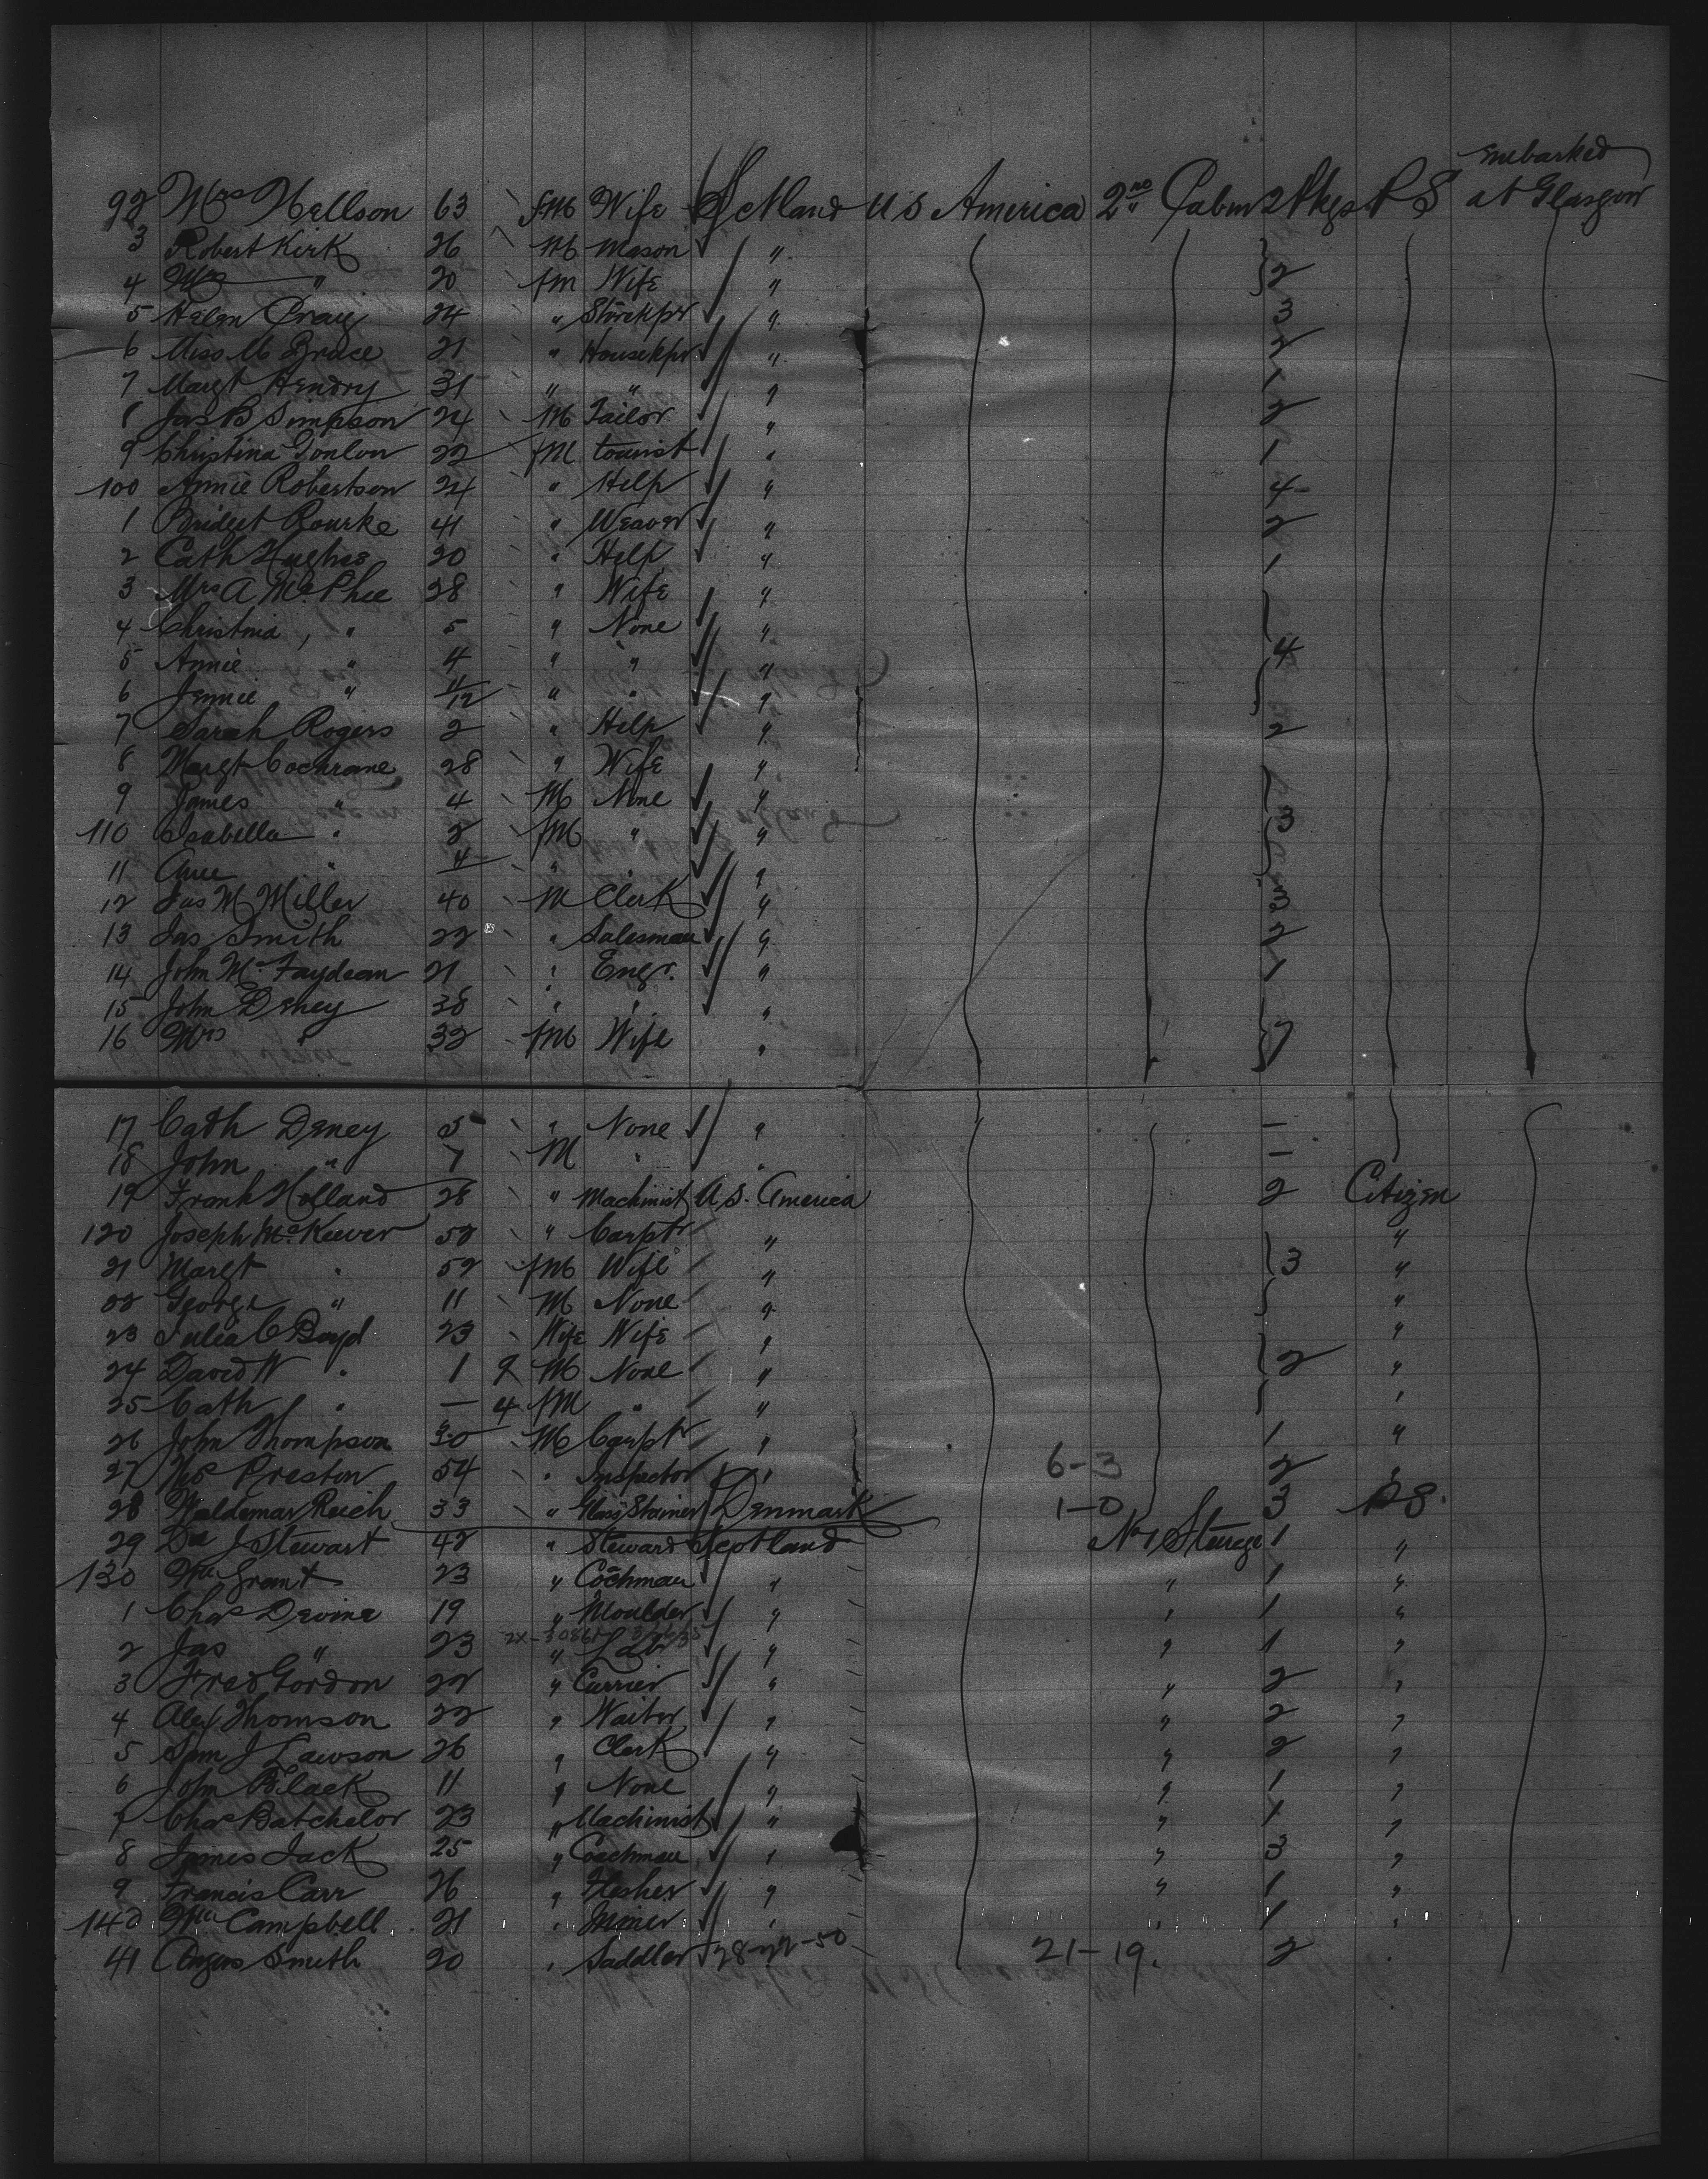 embarked
92 Mrs Nellson 63 fM Wife Scotland U S America 2nd Cabin 2 Pkgs P S at Glasgow
3 Robert Kirk 26 M Mason "
4 Mrs " 20 fM Wife " 2
5 Helen Craig 24 " Storekpr " 3
6 Miss M Bruce 21 " Housekpr " 2
7 Margt Hendry 31 " " " 1
8 Jas B Simpson 24 M Tailor " 2
9 Christina 22 fM tourist " 1
100 Annie Robertson 24 " Help " 4
1 Bridget Rourke 41 " Weaver " 2
2 Cath Hughes 20 " Help " 1
3 Mrs A McPhee 28 " Wife "
4 Christina " 5 " None "
5 Annie " 4 " " " 4
6 Jennie " " " "
7 Sarah Rogers 2 " Help " 2
8 Margt Cochrane 28 " Wife "
9 James " 4 M None "
110 Isabella " 2 fM " " 3
11 " 4 " " "
12 Jas M Miller 40 M Clerk " 3
13 Jas Smith 22 " Salesman " 2
14 John McFaydean 21 " Engr. " 1
15 John Deney 38 " " "
16 Mrs " 32 fM Wife "
17 Cath Deney 5 " None " –
18 John " 7 M " " –
19 Frank Holland 28 " Machinist U.S. America 2 Citizen
120 Joseph McKeever 52 " Carptr " "
21 Margt " 52 fM Wife " 3 "
22 George " 11 M None " "
23 Julia C Boyd 23 Wife Wife " "
24 David W " 1 9 M None " 2 "
25 Cath " — 4 fM " " "
26 John Thompson M Carptr " 1 "
27 Preston 54 " Inspector " 6-3 2 "
28 Waldemar Reich 33 " Glass Stainer Denmark 1-0 3 P S.
29 J Stewart 42 " Steward Scotland No 1 Steerage 1 "
130 Wm Grant 23 " Cochman " " 1 "
1 Chas Devine 19 " Moulder " " 1 "
2 Jas " 23 " Labr " " 1 "
3 Fred Gordon 22 " Currier " " 2 "
4 Alex Thomson 22 " Waiter " " 2 "
5 Sam J Lawson 26 " Clerk " " 2 "
6 John Black 11 " None " " 1 "
7 Chas Batchelor 23 " Machinist " " 1 "
8 James Jack 25 " Coachman " " 3 "
9 Francis Carr 26 " Flesher " " 1 "
140 Wm Campbell 21 " Miner " " 1 "
41 Angus Smith 20 " Saddler 21-19. 2